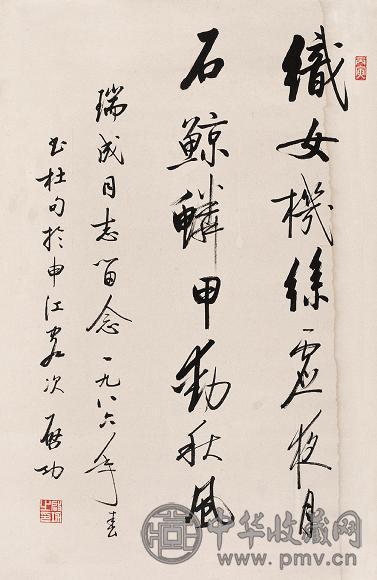 織女機絲虛夜月
石鯨鱗甲動秋風
瑞成同志留念一九八六年春
書杜句於申江客次 啟功
中华收藏网
www.pmv.cn